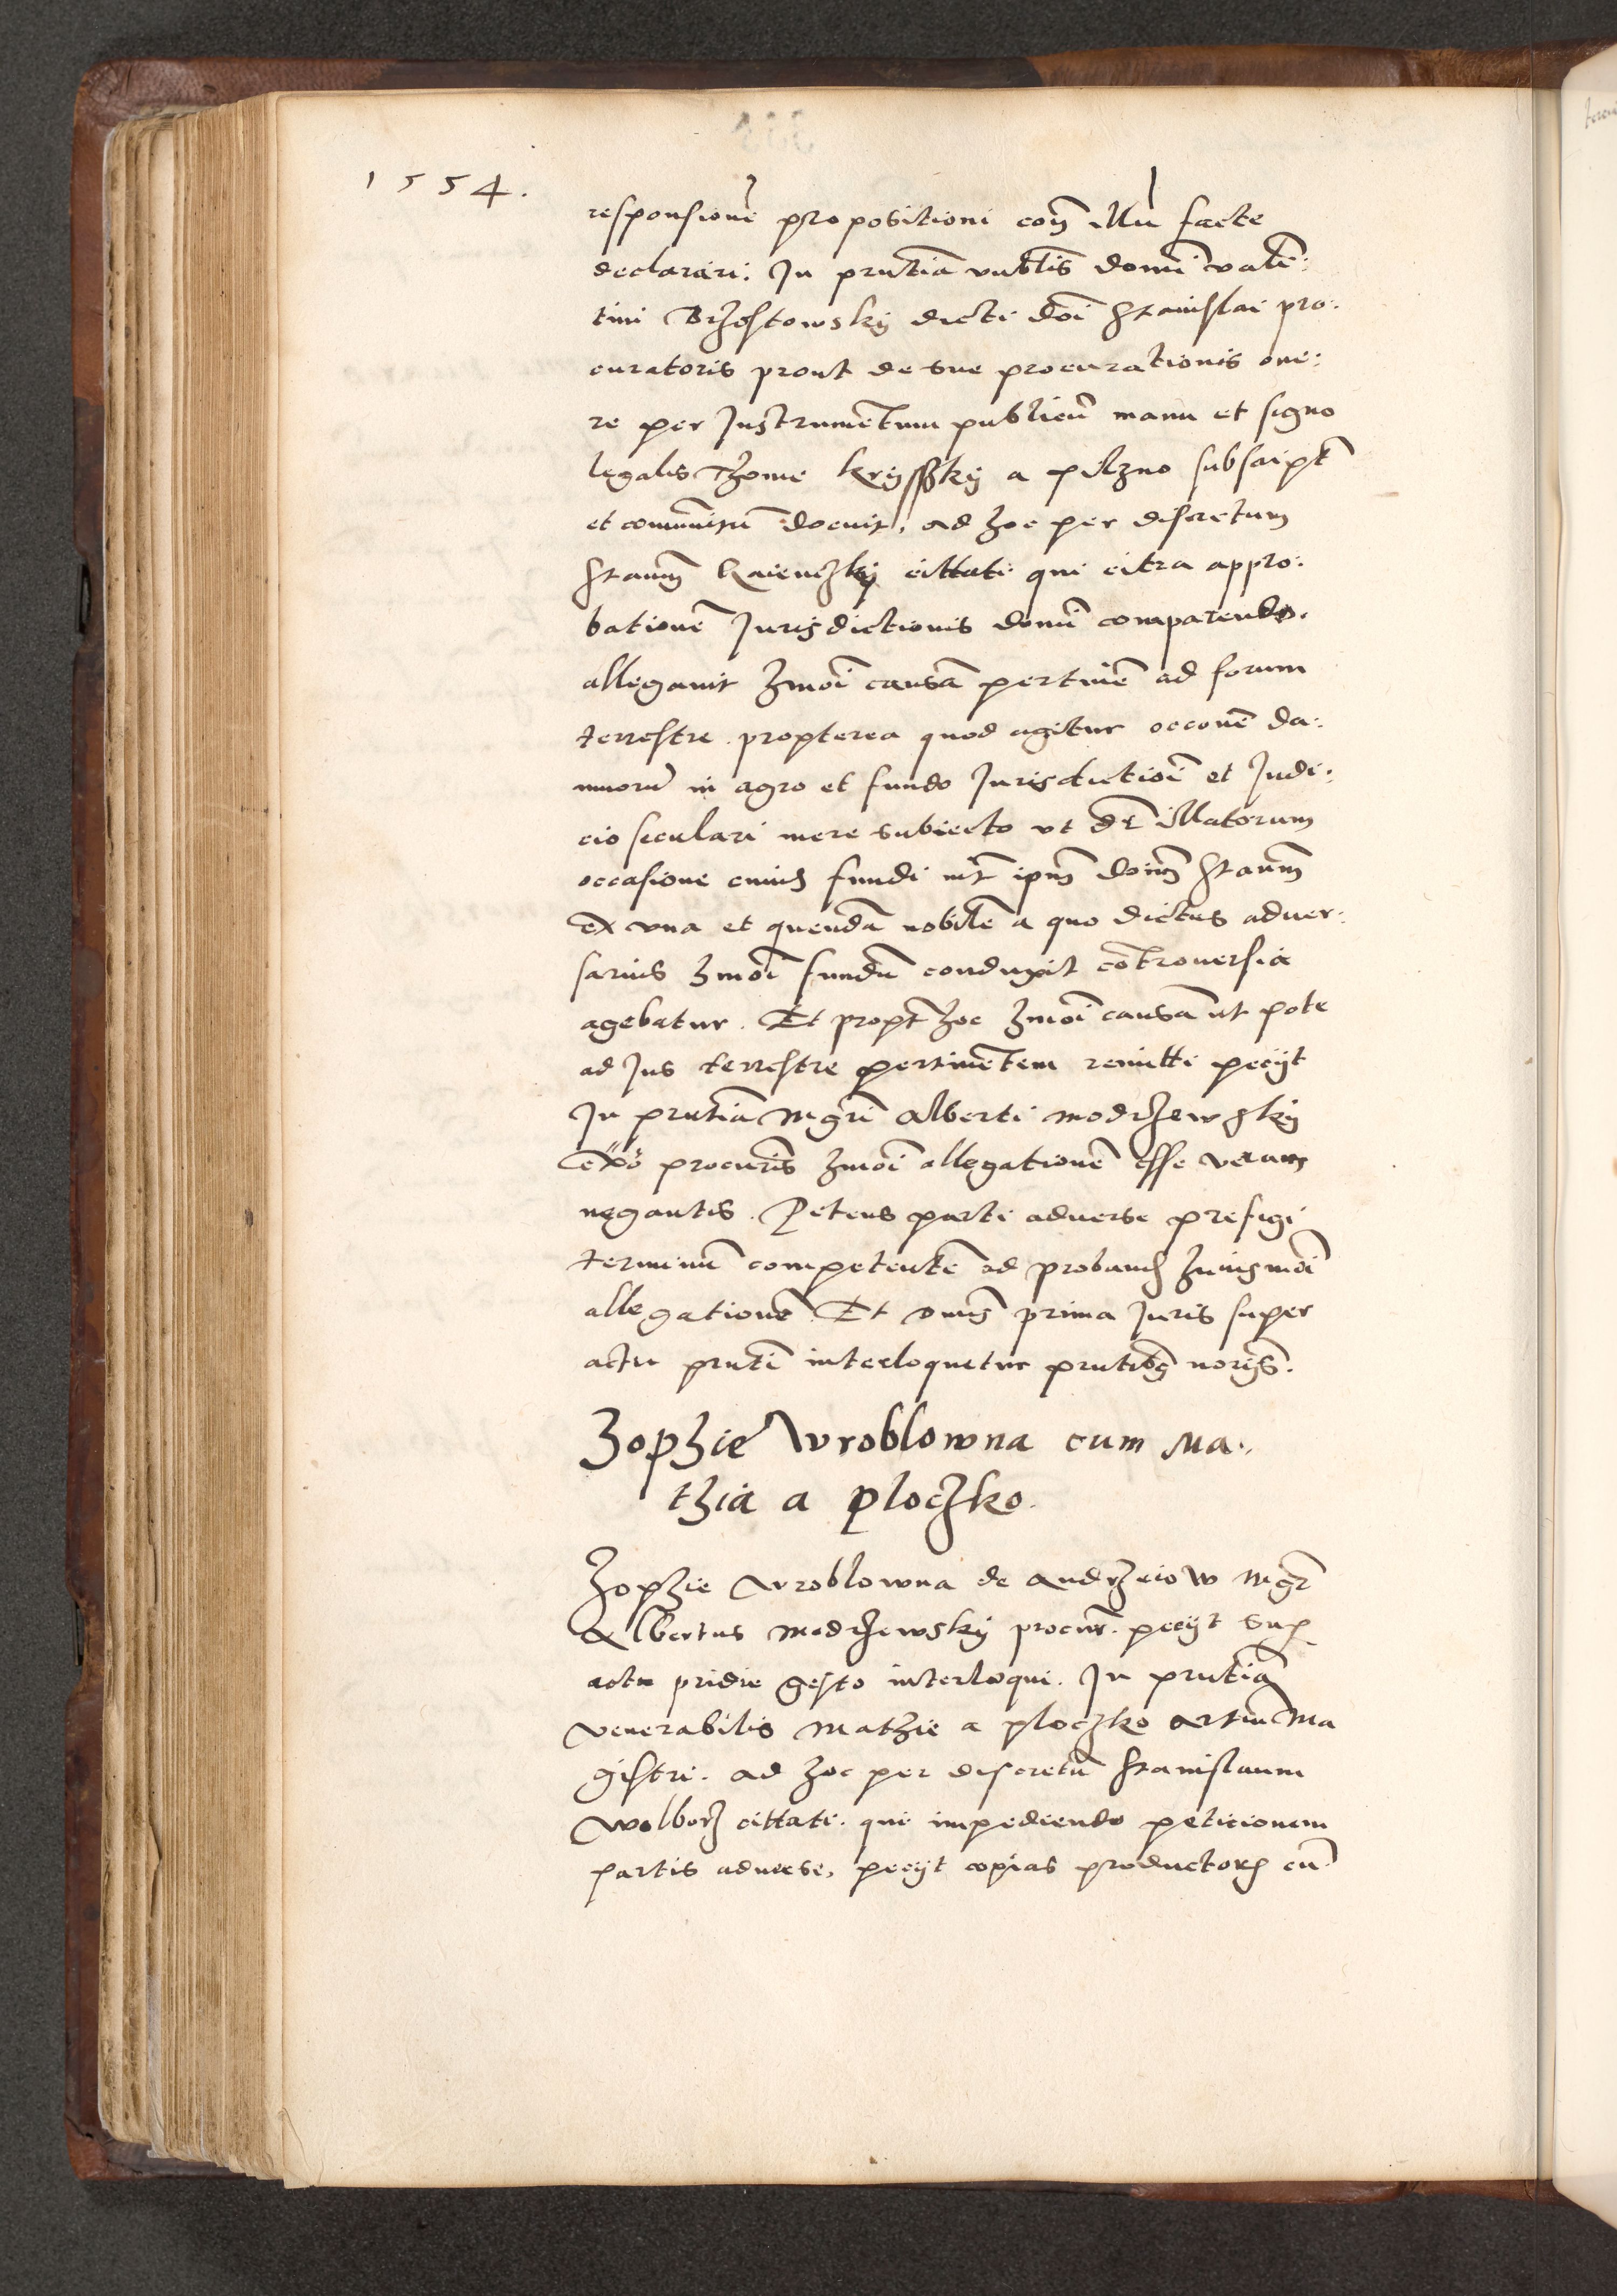 1554.
responsionē propositioni coñ illū facte
declarari. In pn̄tia noblis domī valē:
tini Brzostowsky dicti doī Stanislai pro:
curatoris prout de sue procurationis one:
re per Instrumētum publicū manu et signo
legalis Thome krysszky a pilzno subscript
et comunitū docuit, ad hoc per discretum
Stanīm cittati qui citra appro:
bationē Jurisdictionis domī comparendo.
allegavit hmoī causā pertinē ad forum
terrestre propterea quod agitur occonē da:
mnorū in agro et fundo Jurisdictioī et Judi:
cio seculari mere subiecto ut dr̄ illatorum
occasione cuius fundi int̄ ipm̄ doīm Stanīm
ex una et quendā nobilē a quo dictus adver:
sarius hmoī fundū conduxit cōtroversia
agebatur. Et propt̄ hoc hmoī causā ut pote
ad Jus terrestre pertinētem remitti peciit
In pn̄tia Mgrī Alberti modrzewsky
exo procuris hmoī allegationē esse veram
negantis. Petens parti adverse prefigi
terminū competentē ad proband huiusmoī
allegationē Et dnus prima Juris super
actu pn̄ti interloquetur pn̄tibus noris.
Zophie Wroblowna cum Ma:
thia a ploczko.
Zophie Wroblowna de Andrzeiow Mgr̄
Albertus modrzewsky procur. peciit sup
actu pridie gesto interloqui. In pn̄tia
venerabilis Mathie a ploczko artiū Ma
gistri. ad hoc per discretū Stanislaum
Wolborz cittati. qui impediendo peticionem
partis adverse, peciit copias productorum cū